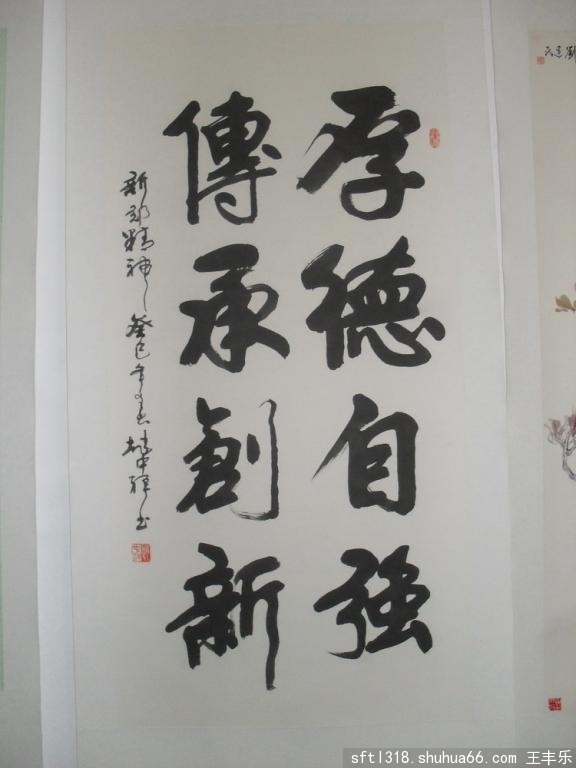 厚德自强
傳承創新
新郑精神 癸巳年春 书
sftl318.shuhua66.com 王丰乐